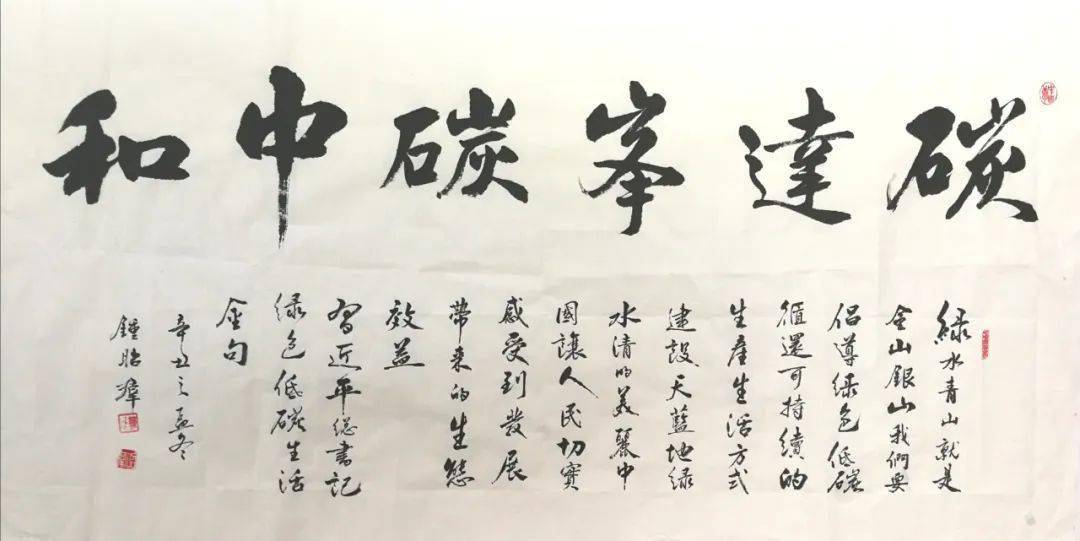 碳達峯碳中和
綠水青山就是
金山銀山我們要
倡導绿色低碳
循還可持續的
生產生活方式
建設天藍地绿
水清的美麗中
國讓人民切實
感受到發展
帶来的生態
效益
習近平总書記
绿色低碳生活
金句
辛丑之孟冬
鍾昭璋